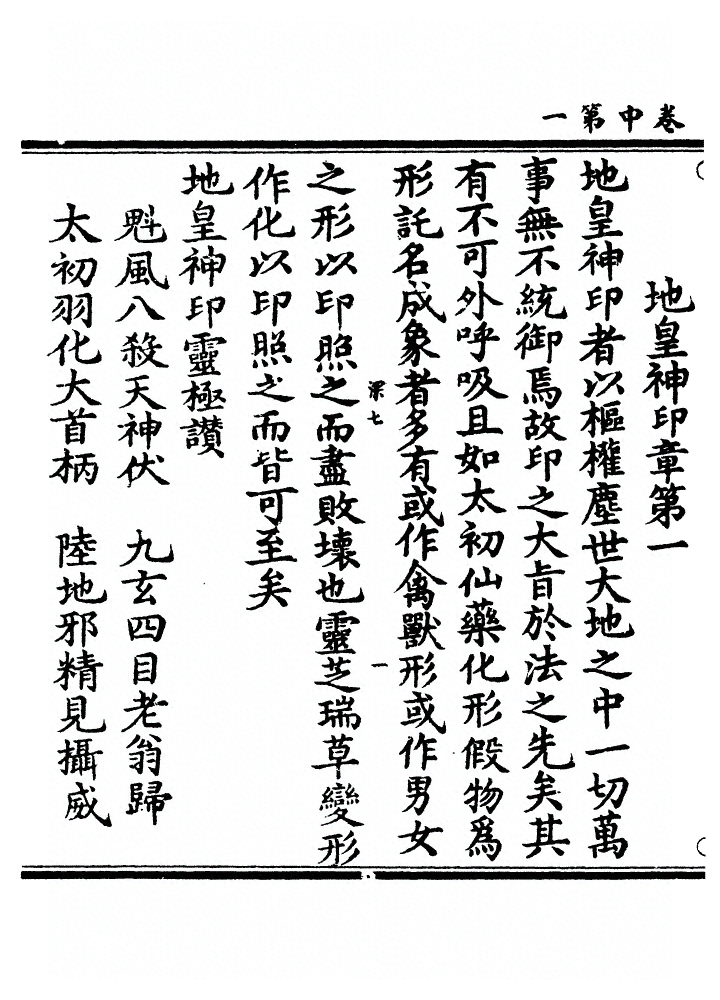 卷中第一
地皇神印章第一
地皇神印者以樞權塵世大地之中一切萬
事無不統御焉故印之大旨於法之先矣其
有不可外呼吸且如太初仙藥化形假物爲
形託名成象者多有或作禽獸形或作男女
深七
一
之形以印照之而盡敗壞也靈芝瑞草變形
作化以印照之而皆可至矣
地皇神印靈極讚
魁風八殺天神伏 九玄四目老翁歸
太初羽化大首柄 陸地邪精見攝威